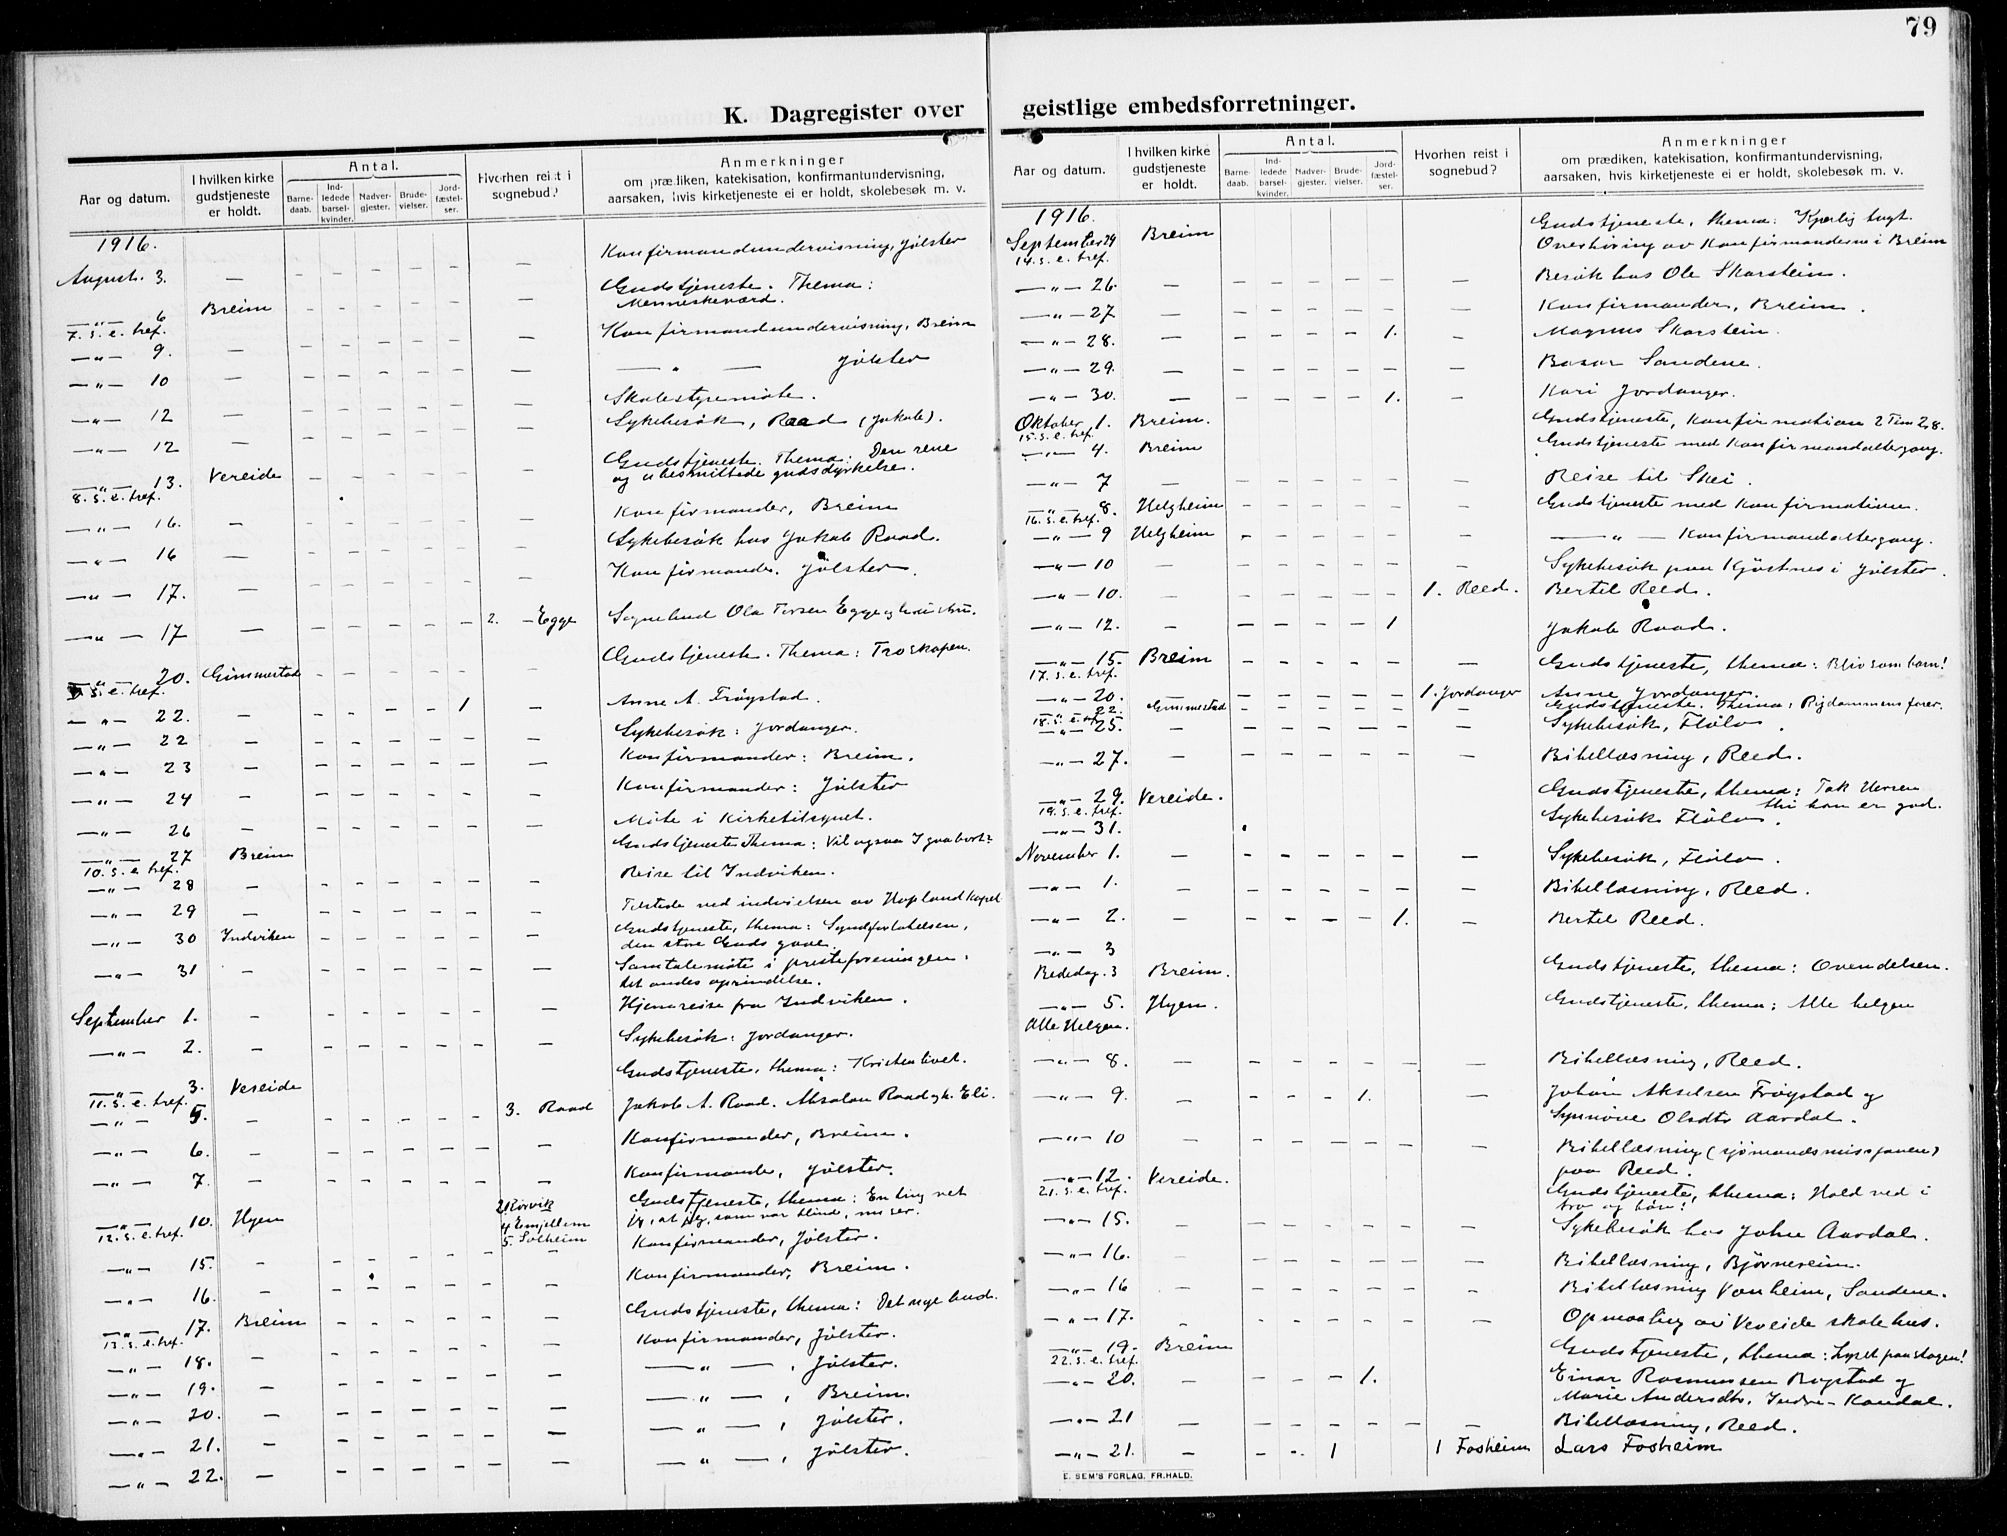 79
K. Dagregister over geistlige embedsforretninger.
Aar og datum.
I hvilken kirke gudstjeneste er holdt.
Antal.
Barnedaab.
Indledede barselkvinder.
Nadvergjester.
Brudevielser.
Jordfæstelser.
Hvorhen reist i sognebud?
Anmerkninger
om prædiken, katekisation, konfirmantundervisning,
aarsaken, hvis kirketjeneste ei er holdt, skolebesøk m. v.
1916.
August. 3. — Konfirmandundervisning, Jølster
—"— 6 Breim Gudstjeneste. Thema:
7. s. e. tref. Menneskeværd.
—"— 9. — Konfirmandundervisning, Breim
—"— 10 — —"— Jølster
—"— 12 — Skolestyremøte.
—"— 12 — Sykebesøk, Reed (Jakob).
—"— 13. Vereide Gudstjeneste. Thema: Den rene
8. s. e. tref. og ubesmittede gudsdyrkelse.
—"— 16. — Konfirmander, Breim
—"— 16 — Sykebesøk hos Jakob Raad.
—"— 17. — Konfirmander. Jølster.
—"— 17 — 2. — Egge Sognebud Ola Egge og hustru.
—"— 20. Gimmestad Gudstjeneste. Thema: Troskapen.
s. e. tref.
—"— 22. — 1 — Anne A. Frøystad.
—"— 22 — Sykebesøk: Jordanger.
—"— 23 — Konfirmander: Breim.
—"— 24 — Konfirmander: Jølster
—"— 26 — Møte i Kirketilsynet.
—"— 27 Breim Gudstjeneste Thema: Vil ogsaa I gaa bort?
10. s. e. tref.
—"— 28 — Reise til Indviken.
—"— 29 — Tilstede ved indvielsen av Hopland kapel
—"— 30 Indviken Gudstjeneste, thema: Syndsforlatelsen,
den store Guds gave.
—"— 31 — Samtalemøte i presteforeningen.
det ondes oprindelse.
September 1. — Hjemreise fra Indviken.
—"— 2. — Sykebesøk: Jordanger.
—"— 3. Vereide Gudstjeneste, thema: Kristenlivet.
11. s. e. tref.
—"— 5. — 3. Raad Jakob A. Raad. Absalon Raad og h. Eli.
—"— 6. — Konfirmander, Breim.
—"— 7. — Konfirmander, Jølster.
—"— 10. Hyen Rørvik Gudstjeneste, thema: En ting vet
12. s. e. tref. 4 Emjellem jeg, at jeg, som var blind, nu ser.
5. Solheim Konfirmander, Jølster.
—"— 15. —
—"— 16. — Konfirmander, Breim.
—"— 17. Breim Gudstjeneste, thema: Det nye bud.
13. s. e. tref.
—"— 18. — Konfirmander, Jølster.
—"— 19. — —"— , Jølster.
—"— 20. — —"— , Breim.
—"— 21. — —"— , Jølster.
—"— 22. — —"— , Jølster.
Aar og datum.
I hvilken kirke gudstjeneste er holdt.
Antal.
Barnedaab.
Indledede barselkvinder.
Nadvergjester.
Brudevielser.
Jordfæstelser.
Hvorhen reist i sognebud?
Anmerkninger
om prædiken, katekisation, konfirmantundervisning,
aarsaken, hvis kirketjeneste ei er holdt, skolebesøk m. v.
1916.
September 24 Breim Gudstjeneste, thema: Kjærlig tugt.
14. s. e. tref. Overhøring av Konfirmanderne i Breim
—"— 26 — Besøk hos Ole Skarstein.
—"— 27 — Konfirmander, Breim.
—"— 28. — 1. — Magnus Skarstein.
—"— 29. — Basar Sandene.
—"— 30. — 1. — Kari Jordanger.
Oktober 1. Breim. Gudstjeneste, Konfirmation 2 Tim 2,8.
15. s. e. tref.
—"— 4. Breim Gudstjeneste med Konfirmandaltergang.
—"— 7 — Reise til Skei.
—"— 8. Helgheim Gudstjeneste med Konfirmation.
16. s. e. tref.
—"— 9 Helgheim —"— Konfirmandaltergang.
—"— 10 — Sykebesøk paa Kjøsnes i Jølster.
—"— 10. — 1. Reed. Bertil Reed.
—"— 12. — 1 — Jakob Raad.
—"— 15. Breim — Gudstjeneste, thema: Bliv som barn!
17. s. e. tref.
—"— 20. — 1. Jordanger Anne Jordanger.
—"— 22. Gimmestad Gudstjeneste. Thema: Rigdommens farer.
18. s. e. tref.
—"— 25. — Sykebesøk, Fløtu.
—"— 27. — Bibellæsning, Reed.
—"— 29. Vereide. Gudstjeneste, thema: Tak Herren
19. s. e. tref. thi han er god.
—"— 31. Sykebesøk Fløtu.
November 1. — Sykebesøk, Fløtu.
—"— 1. — Bibellæsning, Reed.
—"— 2. — 1. — Bertil Reed.
—"— 3
Bededag. 3 Breim. Gudstjeneste, thema: Omvendelsen.
—"— 5. Hyen. Gudstjeneste, thema: Alle helgen
Alle Helgen.
—"— 8. — Bibellæsning, Reed.
—"— 9. — 1. — Johan Akselsen Frøystad og
Synnøve Olsdtr Aardal.
—"— 10 — Bibellæsning (sjømandsmissjonen)
paa Reed.
—"— 12. Vereide. Gudstjeneste, thema: Hold ved i
21. s. e. tref. tro og bøn!
—"— 15. — Sykebesøk hos Johan Aardal.
—"— 16. — Bibellæsning, Bjørnereim.
—"— 16 — Bibellæsning Vonheim, Sandene.
—"— 17. — Opmaaling av Vereide skolehus.
—"— 19. Breim Gudstjeneste, thema: Lyset paa stagen!
22. s. e. tref.
—"— 20. 1. Einar Rasmussen Bogstad og
Marie Andersdtr. Indre-Kandal.
—"— 21 — Bibellæsning, Reed.
—"— 21. — 1 1 Fosheim Lars Fosheim
E. SEM'S FORLAG, FR.HALD.